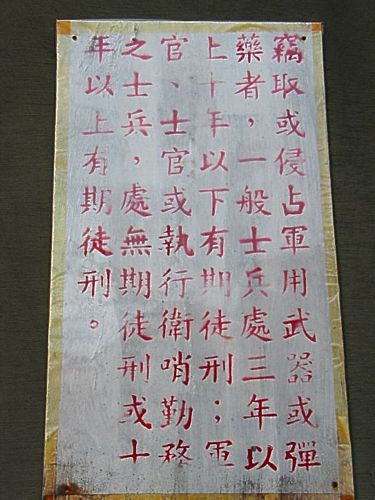 竊取或侵占軍用武器或彈
藥者，一般士兵處三年以
上十年以下有期徒刑；軍
官、士官或執行衛哨勤務
之士兵，處無期徒刑或十
年以上有期徒刑。